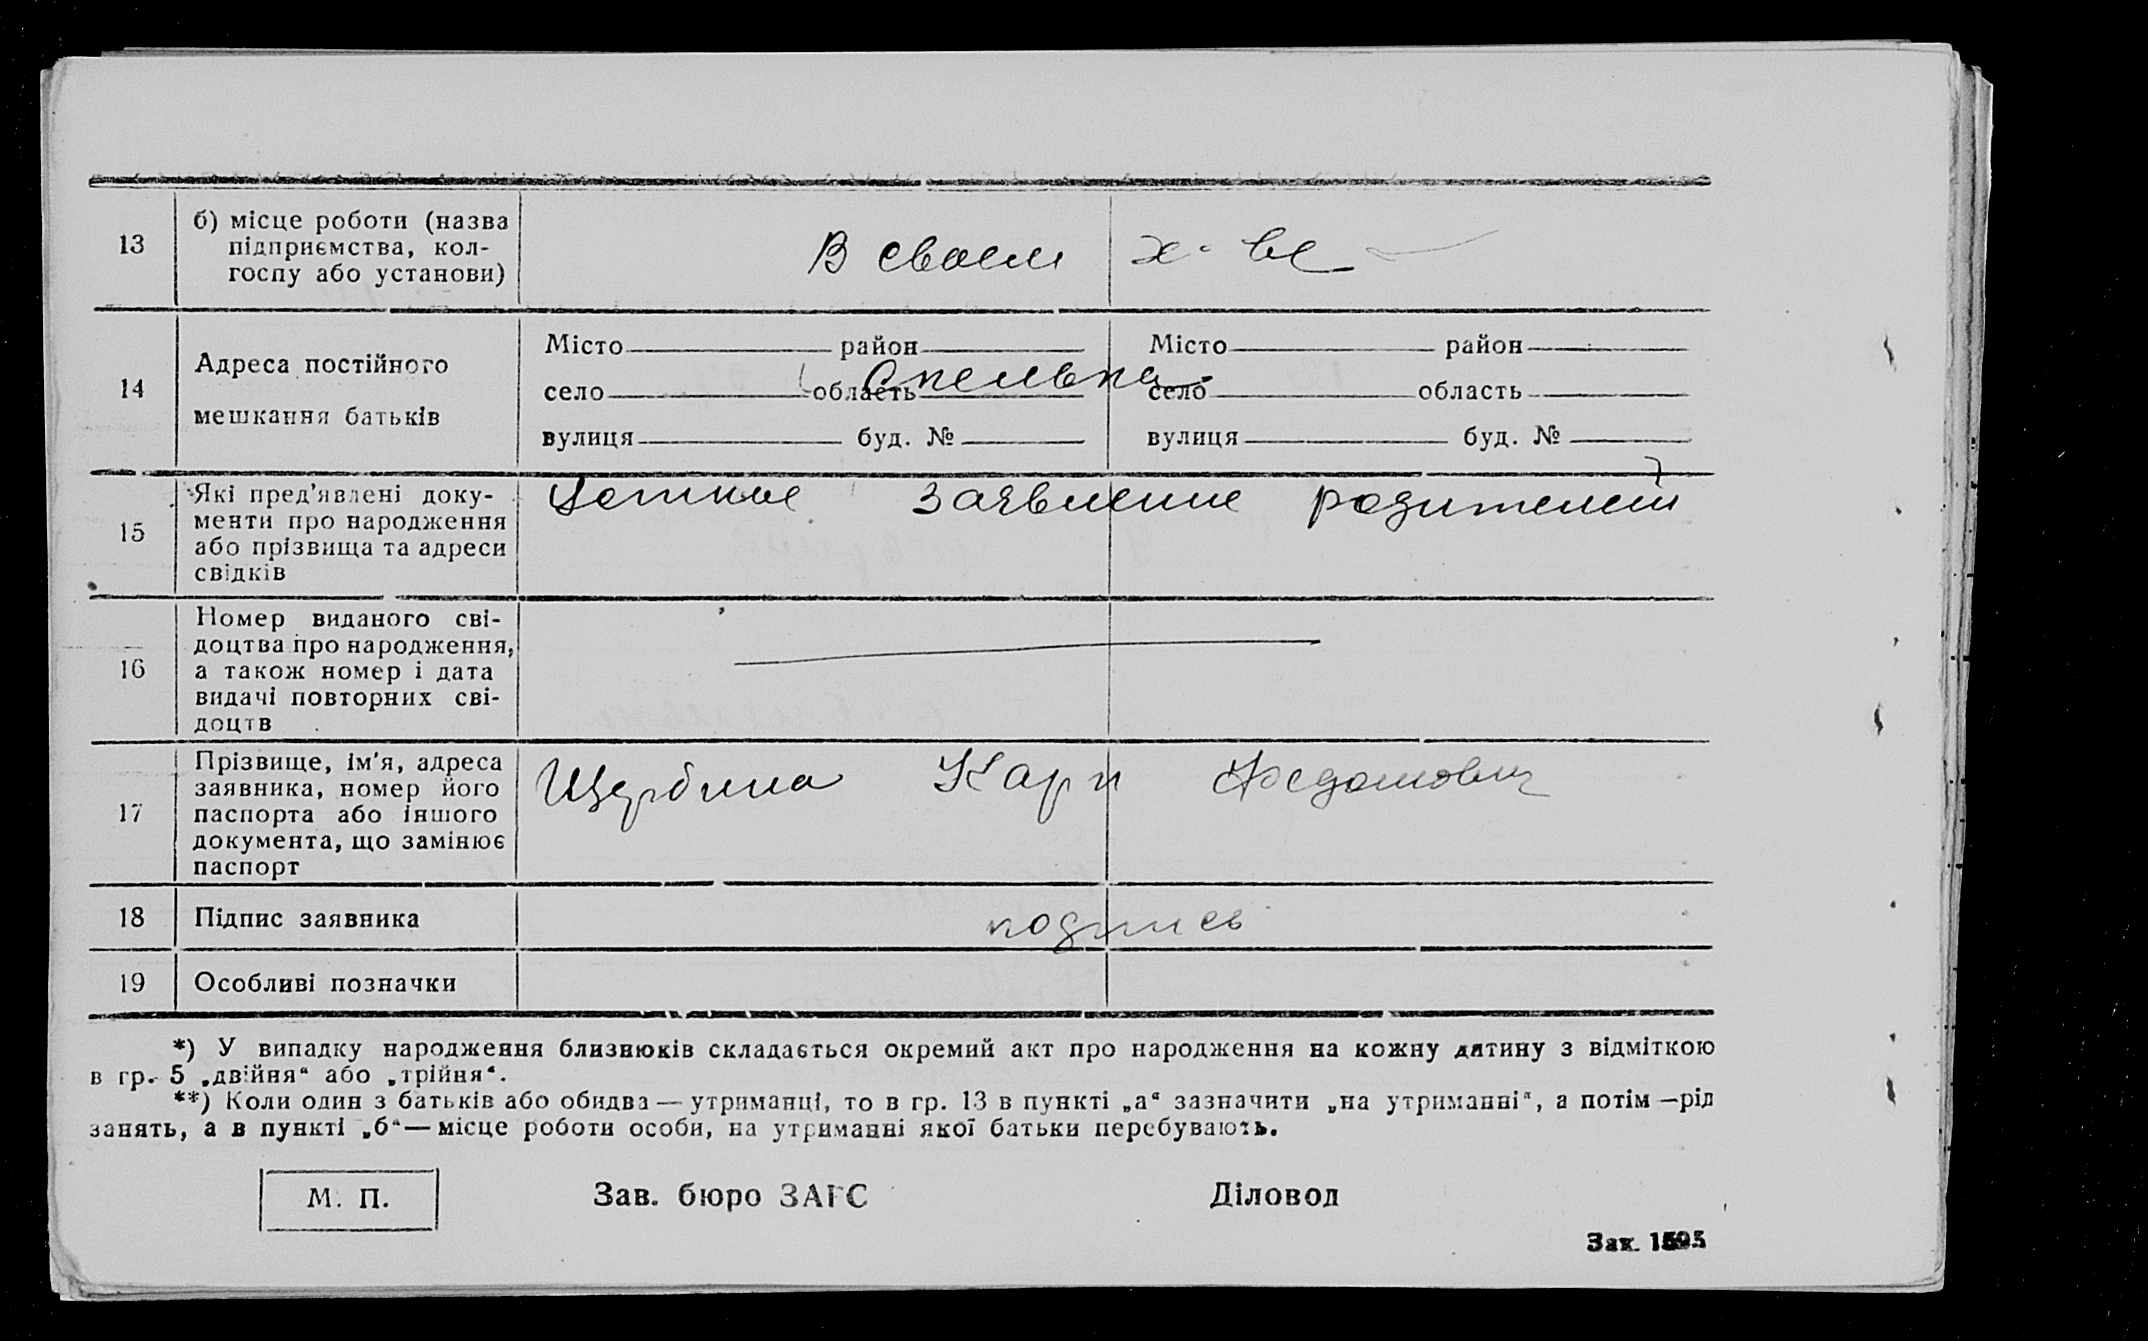 13 б) місце роботи (назва
підприємства, кол-
госпу або установи)
В своем х-ве
14 Адреса постійного
мешкання батьків
Місто район Місто район
село область село область
вулиця буд. № вулиця буд. №
15 Які пред'явлені доку-
менти про народження
або прізвища та адреси
свідків
заявление родителей
16 Номер виданого сві-
доцтва про народження,
а також номер і дата
видачі повторних сві-
доцтв
17 Прізвище, ім'я, адреса
заявника, номер його
паспорта або іншого
документа, що замінює
паспорт
Щербина Карп
18 Підпис заявника подпись
19 Особливі позначки
*) У випадку народження близнюків складається окремий акт про народження на кожну дитину з відміткою
в гр. 5 „двійня“ або „трійня“.
**) Коли один з батьків або обидва — утриманці, то в гр. 13 в пункті „а“ зазначити „на утриманні“, а потім — рід
занять, а в пункті „б“ — місце роботи особи, на утриманні якої батьки перебувають.
М. П. Зав. бюро ЗАГС Діловод
Зак.